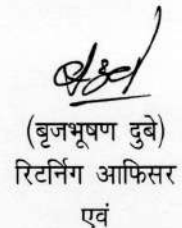 (बृजभूषण दुबे)
रिटर्निग आफिसर
एवं